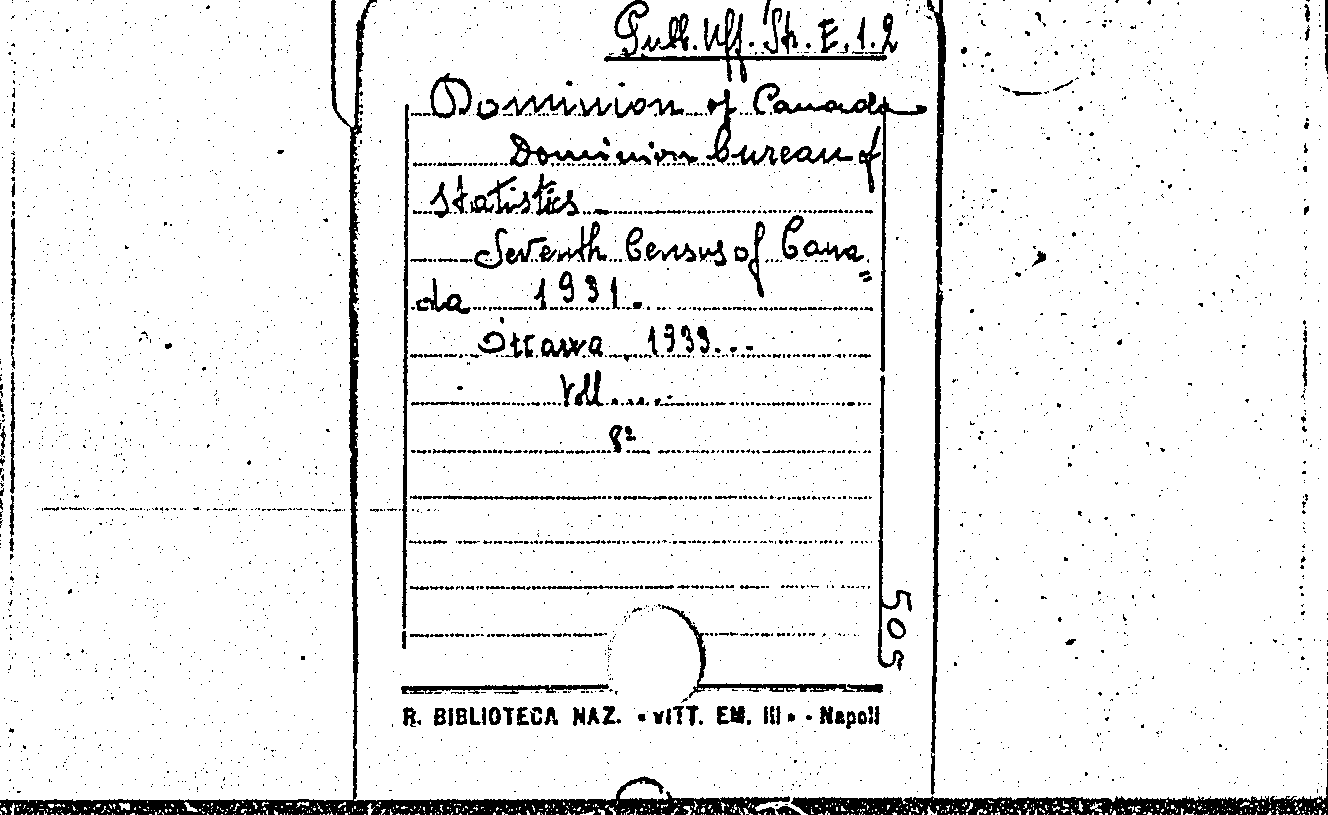 Pubb. Uff. Str. E.1.2
Dominion of Canada
Dominion bureau of
statistics
Seventh Census of Cana=
da 1931.
Ottawa 1933...
Voll.....
8º
505
R. BIBLIOTECA NAZ. "VITT. EM. III" - Napoli